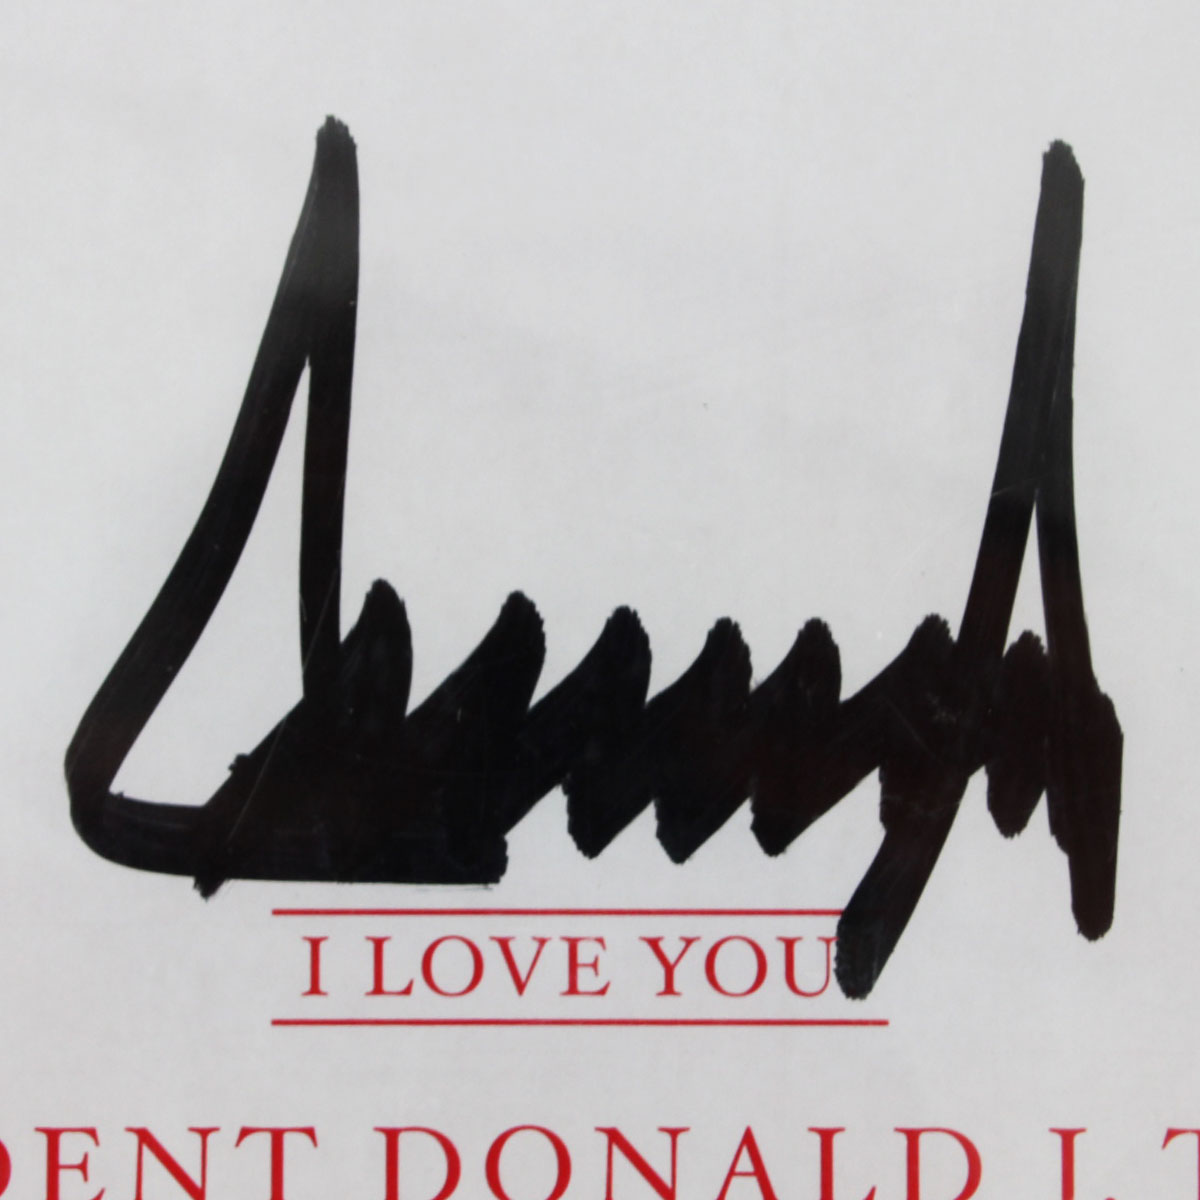 I LOVE YOU
DENT DONALD J. T